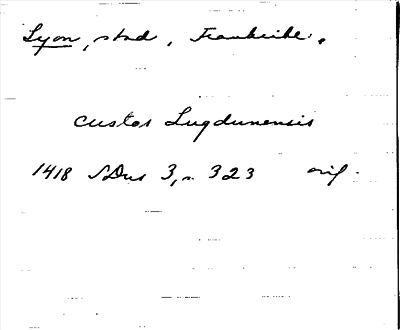 Lyon, stad, Frankrike.
custos Lugdunensis
1418 SDns 3, s. 323 orig.